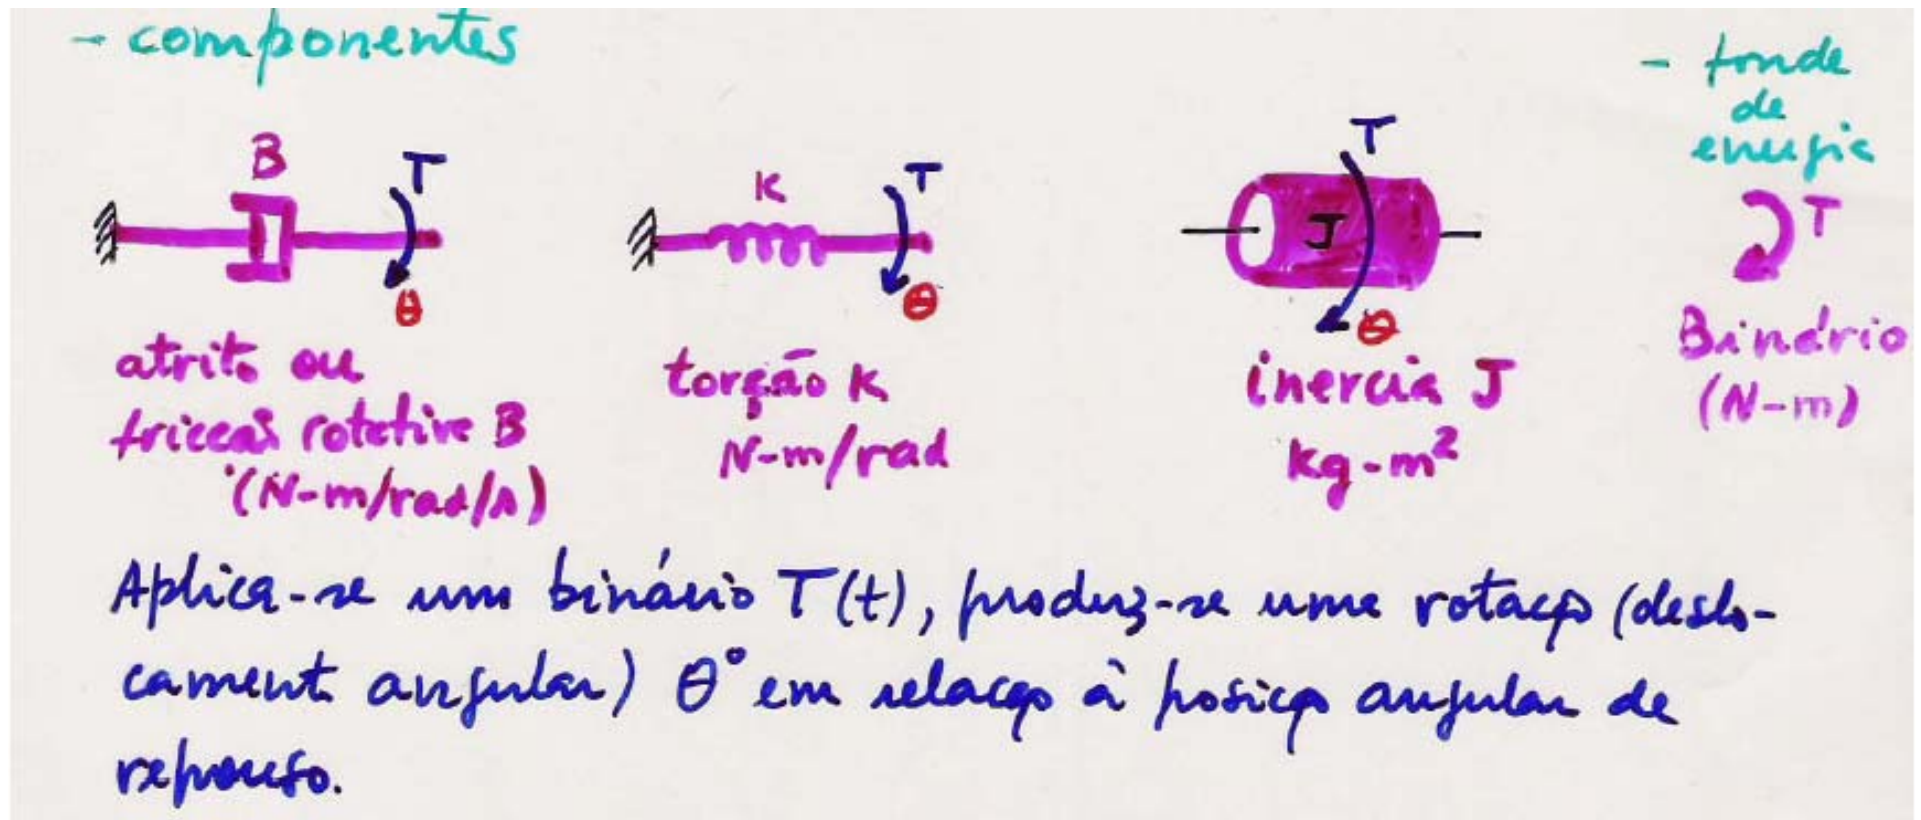 - componentes
- fonte de energia
B
T
θ
K
T
θ
T
J
θ
T
atrito ou
fricção rotativa B
(N-m/rad/s)
torção K
N-m/rad
inercia J
kg-m²
Binário
(N-m)
Aplica-se um binário T(t), produz-se uma rotação (deslo-
camento angular) θ° em relação à posição angular de
repouso.